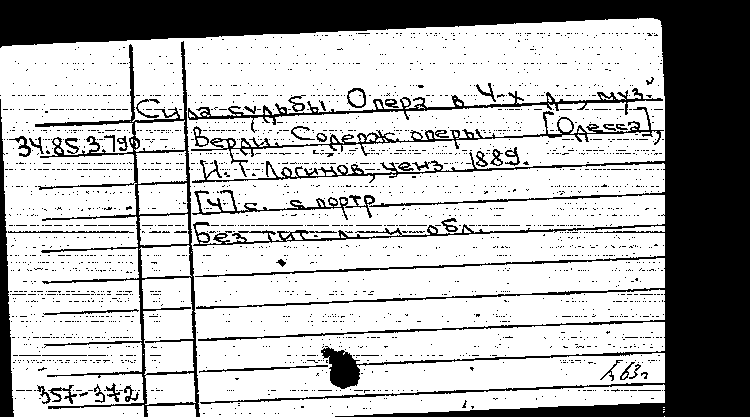 Сила судьбы. Опера в 4-х д., муз.
34.85.3.790. Верди. Содерж. оперы. [Одесса],
И. Т. Логинов, ценз. 1889.
[4] с. с портр.
Без тит. л. и обл.
357-372